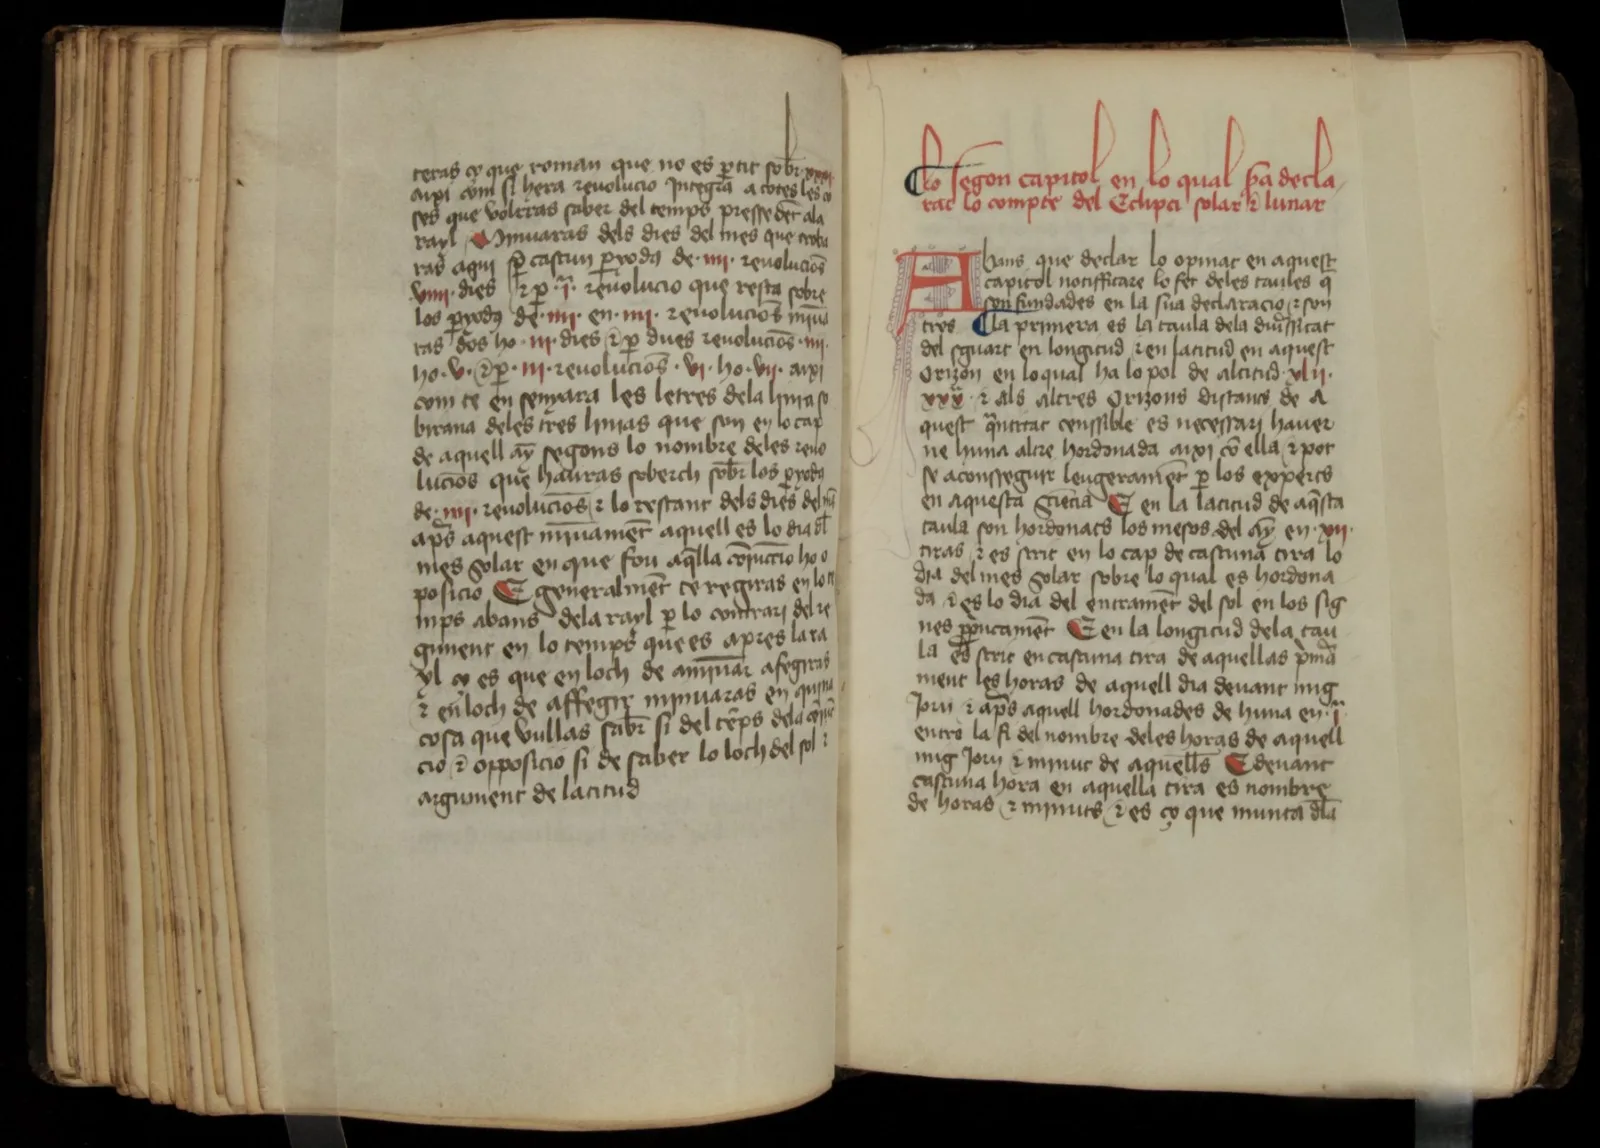 teras ço que roman que no es ꝑtit sobr· xxxi
aixi com si hera reuolucio Integra a totes les co
ses que volrras saber del temps pressedēt ala
rayl Minuaras dels dies del mes que troba
ras aqui ꝑ cascun ꝑyodꝯ de ·iiii· reuolucions
viiii· dies ⁊ ꝑ ·i· reuolucio que resta sobre
los ꝑyodꝯ de ·iiii· en ·iiii· reuolucions minua
ras dos ho ·iii· dies ⁊ ꝑ dues reuolucions ·iiii·
ho ·v· ⁊ ꝑ ·iii· reuolucions ·vi· ho ·vii· aixi
com te en senyara les letres dela linia so
birana deles tres linias que son en lo cap
de aquell āy segons lo nombre deles reuo
lucions que hauras soberch sobr los ꝑyodꝯ
de ·iiii· reuolucions ⁊ lo restant dels dies del
ap̄s aquest minuamēt aquell es lo dia dl
mes Solar en que fou aq̄lla cōiuctio ho o
posicio E generalmēt te regiras en lo te
mps abans dela rayl ꝑ lo contrari del re
giment en lo temps que es apres la ra
yl ço es que en loch de aminuar afegiras
⁊ en loch de affegir minuaras en quina
cosa que vullas sabr si del tēps dela
cio ⁊ opposicio si de saber lo loch del sol ⁊
argument de latitud
Lo segon capitol en lo qual sa decla
rat lo compte del Eclipci solar ⁊ lunar
Abans que declar lo opinat en aquest
capitol notifficare lo fet deles taules q̄
son fundades en la sua declaracio ⁊ son
tres La primera es la taula dela diuʼssitat
del sguart en longitud ⁊ en latitud en aquest
Orizon en lo qual ha lo pol de altitud ·xlii·
xxx ⁊ als altres Orizons distans de A
quest q̄ntitat censsible es necessari hauer
ne huna altre hordonada aixi cō ella ⁊ pot
se aconsseguir leugeramēt ꝑ los experts
en aquesta Sciēcia E en la latitud de aq̄sta
taula son hordonats los mesos del āy en ·xii·
tiras ⁊ es scrit en lo cap de cascuna tira lo
dia del mes Solar sobre lo qual es hordona
da ⁊ es lo dia del entramēt del sol en los sig
nes E en la longitud dela tau
la es scrit en cascuna tira de aquellas p̄ma
ment les horas de aquell dia deuant mig
Jorn ⁊ ap̄s aquell hordonades de huna en ·i·
entro la fi del nombre deles horas de aquell
mig Jorn ⁊ minut de aquells E deuant
cascuna hora en aquella tira es nombre
de horas ⁊ minuts ⁊ es ço que munta dla